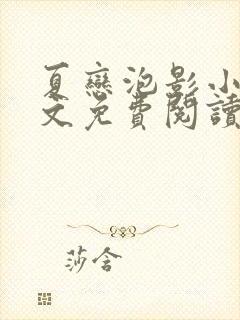 夏戀泡影小
文免費閱讀
莎含